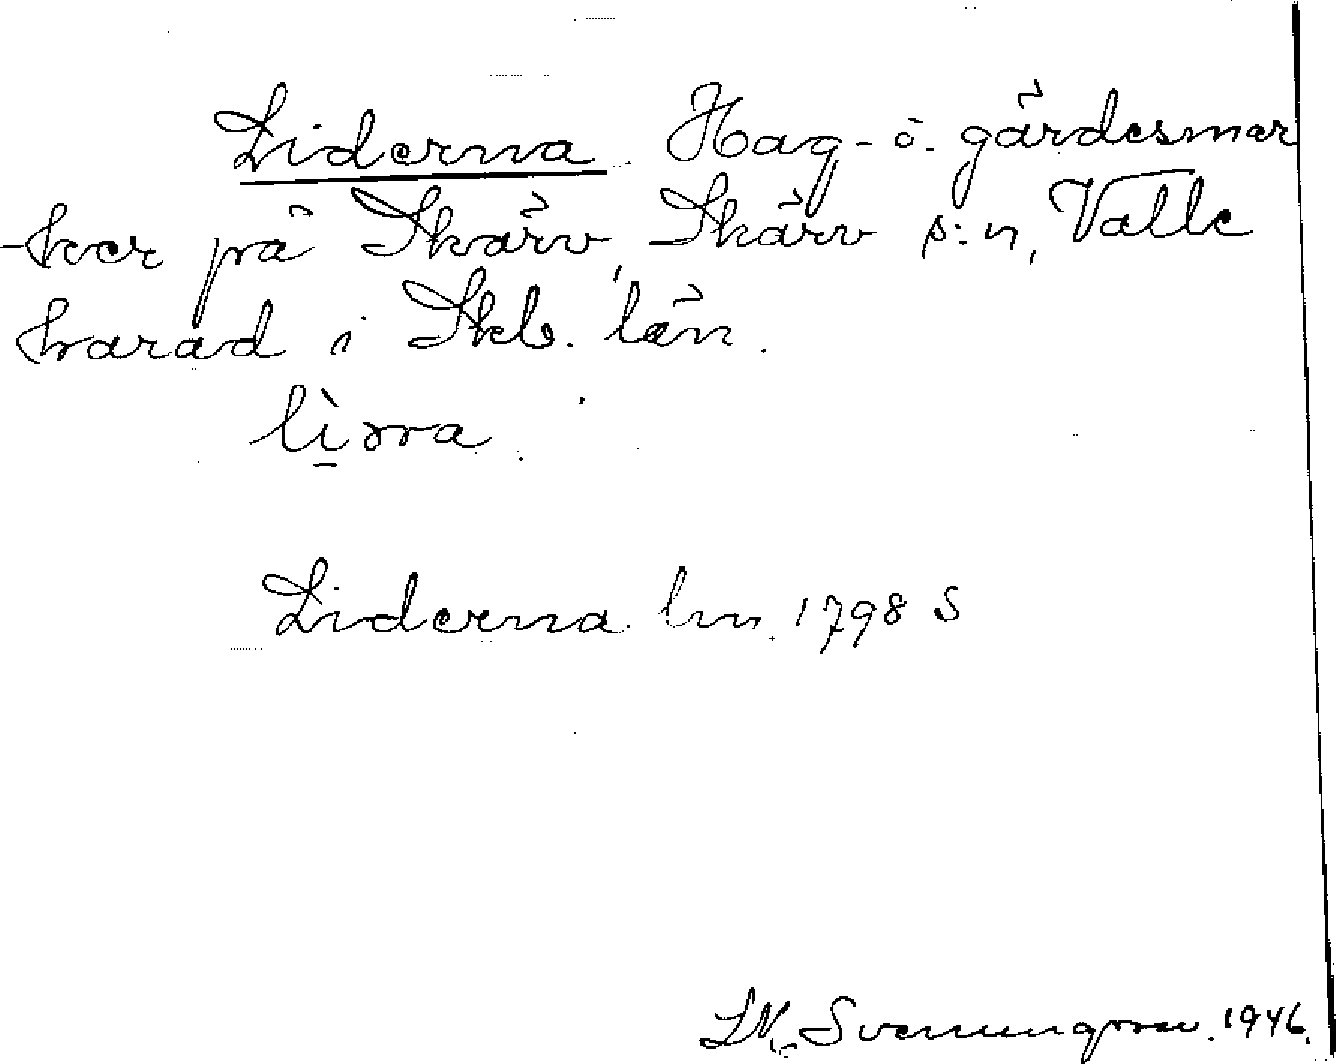 Liderna. Hag- o. gärdesmar
ker på Skärv, Skärv s:n, Valle
härad i Skb. län.
lìrra.
Liderna hm. 1798 S
Svenungsson. 1946.